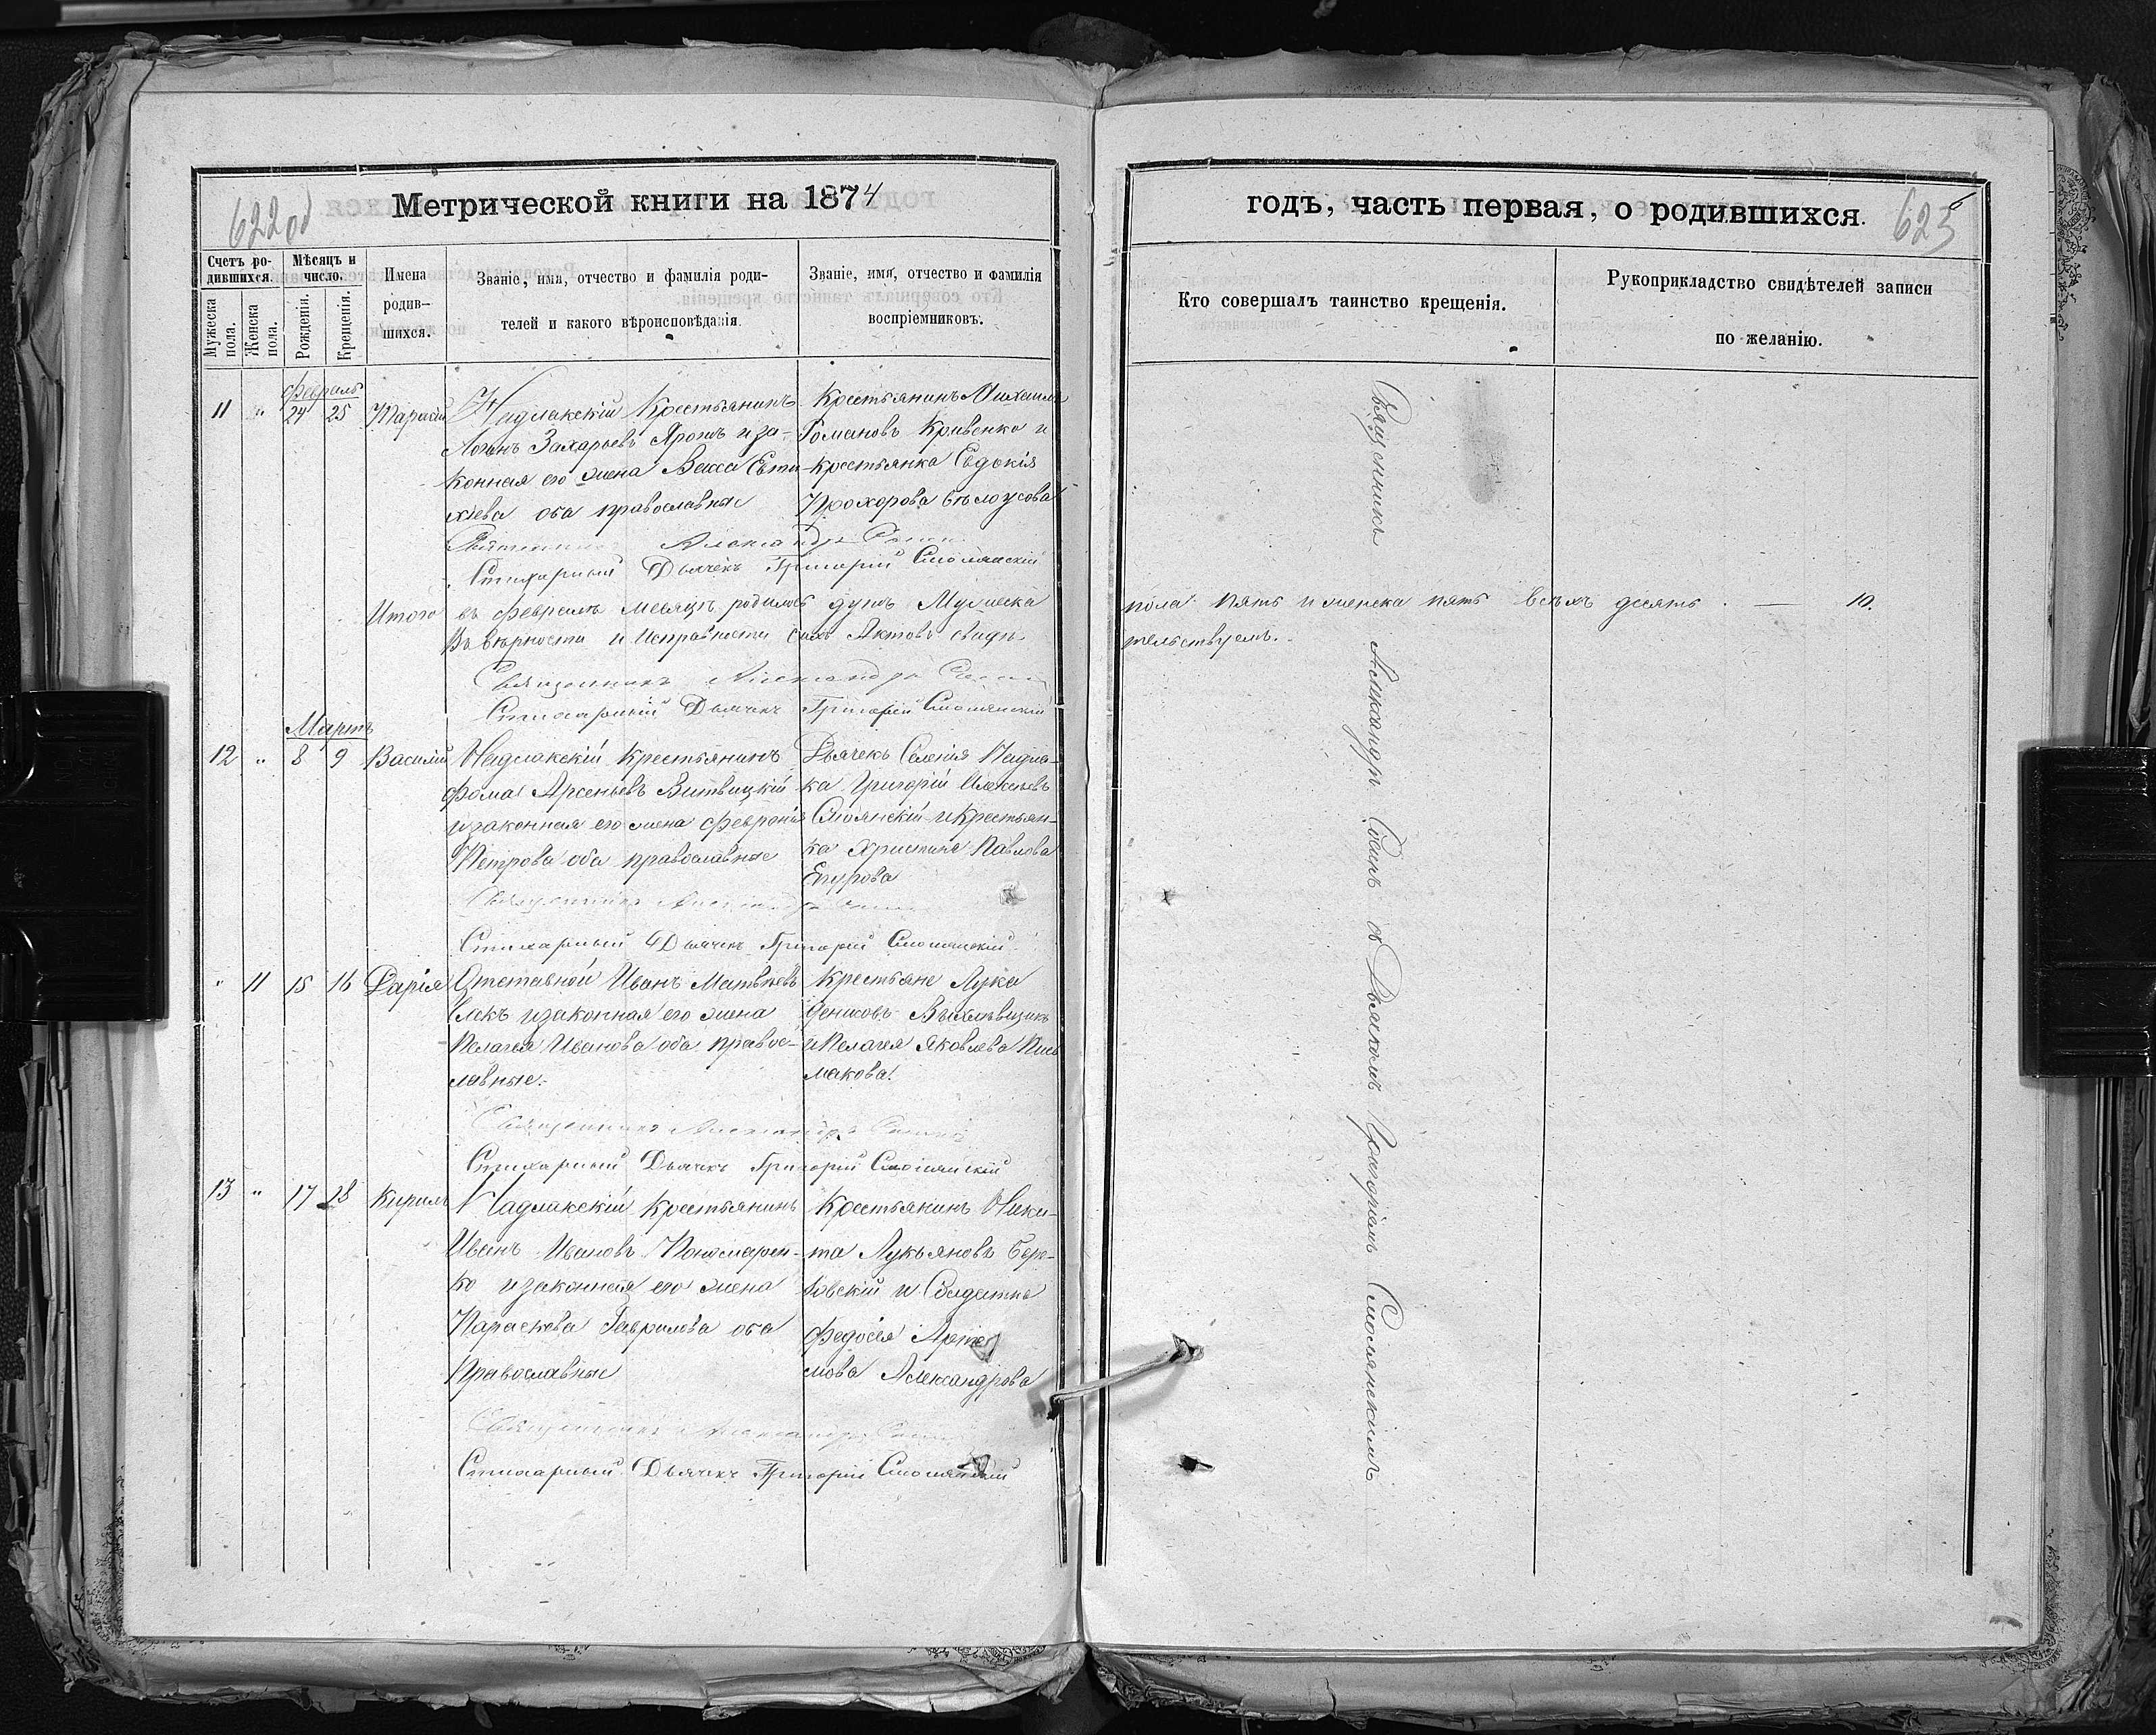 622 об
Метрической книги на 1874
Счетъ ро-
дившихся.
Мужеска
пола.
Женска
пола.
Мѣсяцъ и
число.
Рожденія.
Крещенія.
Имена
родив-
шихся.
Званіе, имя, отчество и фамилія роди-
телей и какого вѣроисповѣданія.
Званіе, имя, отчество и фамилія
воспріемниковъ.
Февраль
11 " 24 25 Тарасій
Надлакскій Крестьянинъ
Захарьевъ и за-
конная его жена Васса Евти-
хіева оба православные
Крестьянинъ Михаилъ
Романовъ Кривенко и
крестьянка Евдокія
Прохорова Бѣлоусова
Священникъ Александръ
Стихарный Дьячекъ Григорій Смолянскій
Итого въ Февралѣ месяцѣ родилось душъ Мужеска
Въ вѣрности и исправности сихъ Актовъ свидѣ-
Священникъ Александръ
Стихарный Дьячекъ Григорій Смолянскій
Мартъ
12 " 8 9 Василій
Надлакскій Крестьянинъ
Фома Арсеньевъ Витвицкій
и законная его жена Февронія
Петрова оба православные
Дьячекъ Селенія Надла-
ка Григорій Алексѣевъ
Смолянскій и Крестьян-
ка Христина Павлова
Священникъ Александръ
Стихарный Дьячекъ Григорій Смолянскій
" 11 15 16 Дарія
Отставной Иванъ Матвѣевъ
и законная его жена
Пелагея Иванова оба право-
славные.
Крестьяне Лука
Денисовъ
и Пелагея Яковлева
макова.
Священникъ Александръ
Стихарный Дьячекъ Григорій Смолянскій
13 " 17 18 Кирилъ
Надлакскій Крестьянинъ
Иванъ Ивановъ Пономарен-
ко и законная его жена
Параскева Гаврилова оба
Православные
Крестьянинъ Ники-
та Лукьяновъ Бере-
ховскій и Солдатка
Федосія Арте
мова Александрова
Священникъ Александръ
Стихарный Дьячекъ Григорій Смолянскій
годъ, часть первая, о родившихся.
623
Кто совершалъ таинство крещенія.
Рукоприкладство свидѣтелей записи
по желанію.
пола пять и женска пять всѣхъ десять. — 10.
тельствуемъ.
Священникъ Александръ съ Дьякомъ Григоріемъ Смолянскимъ